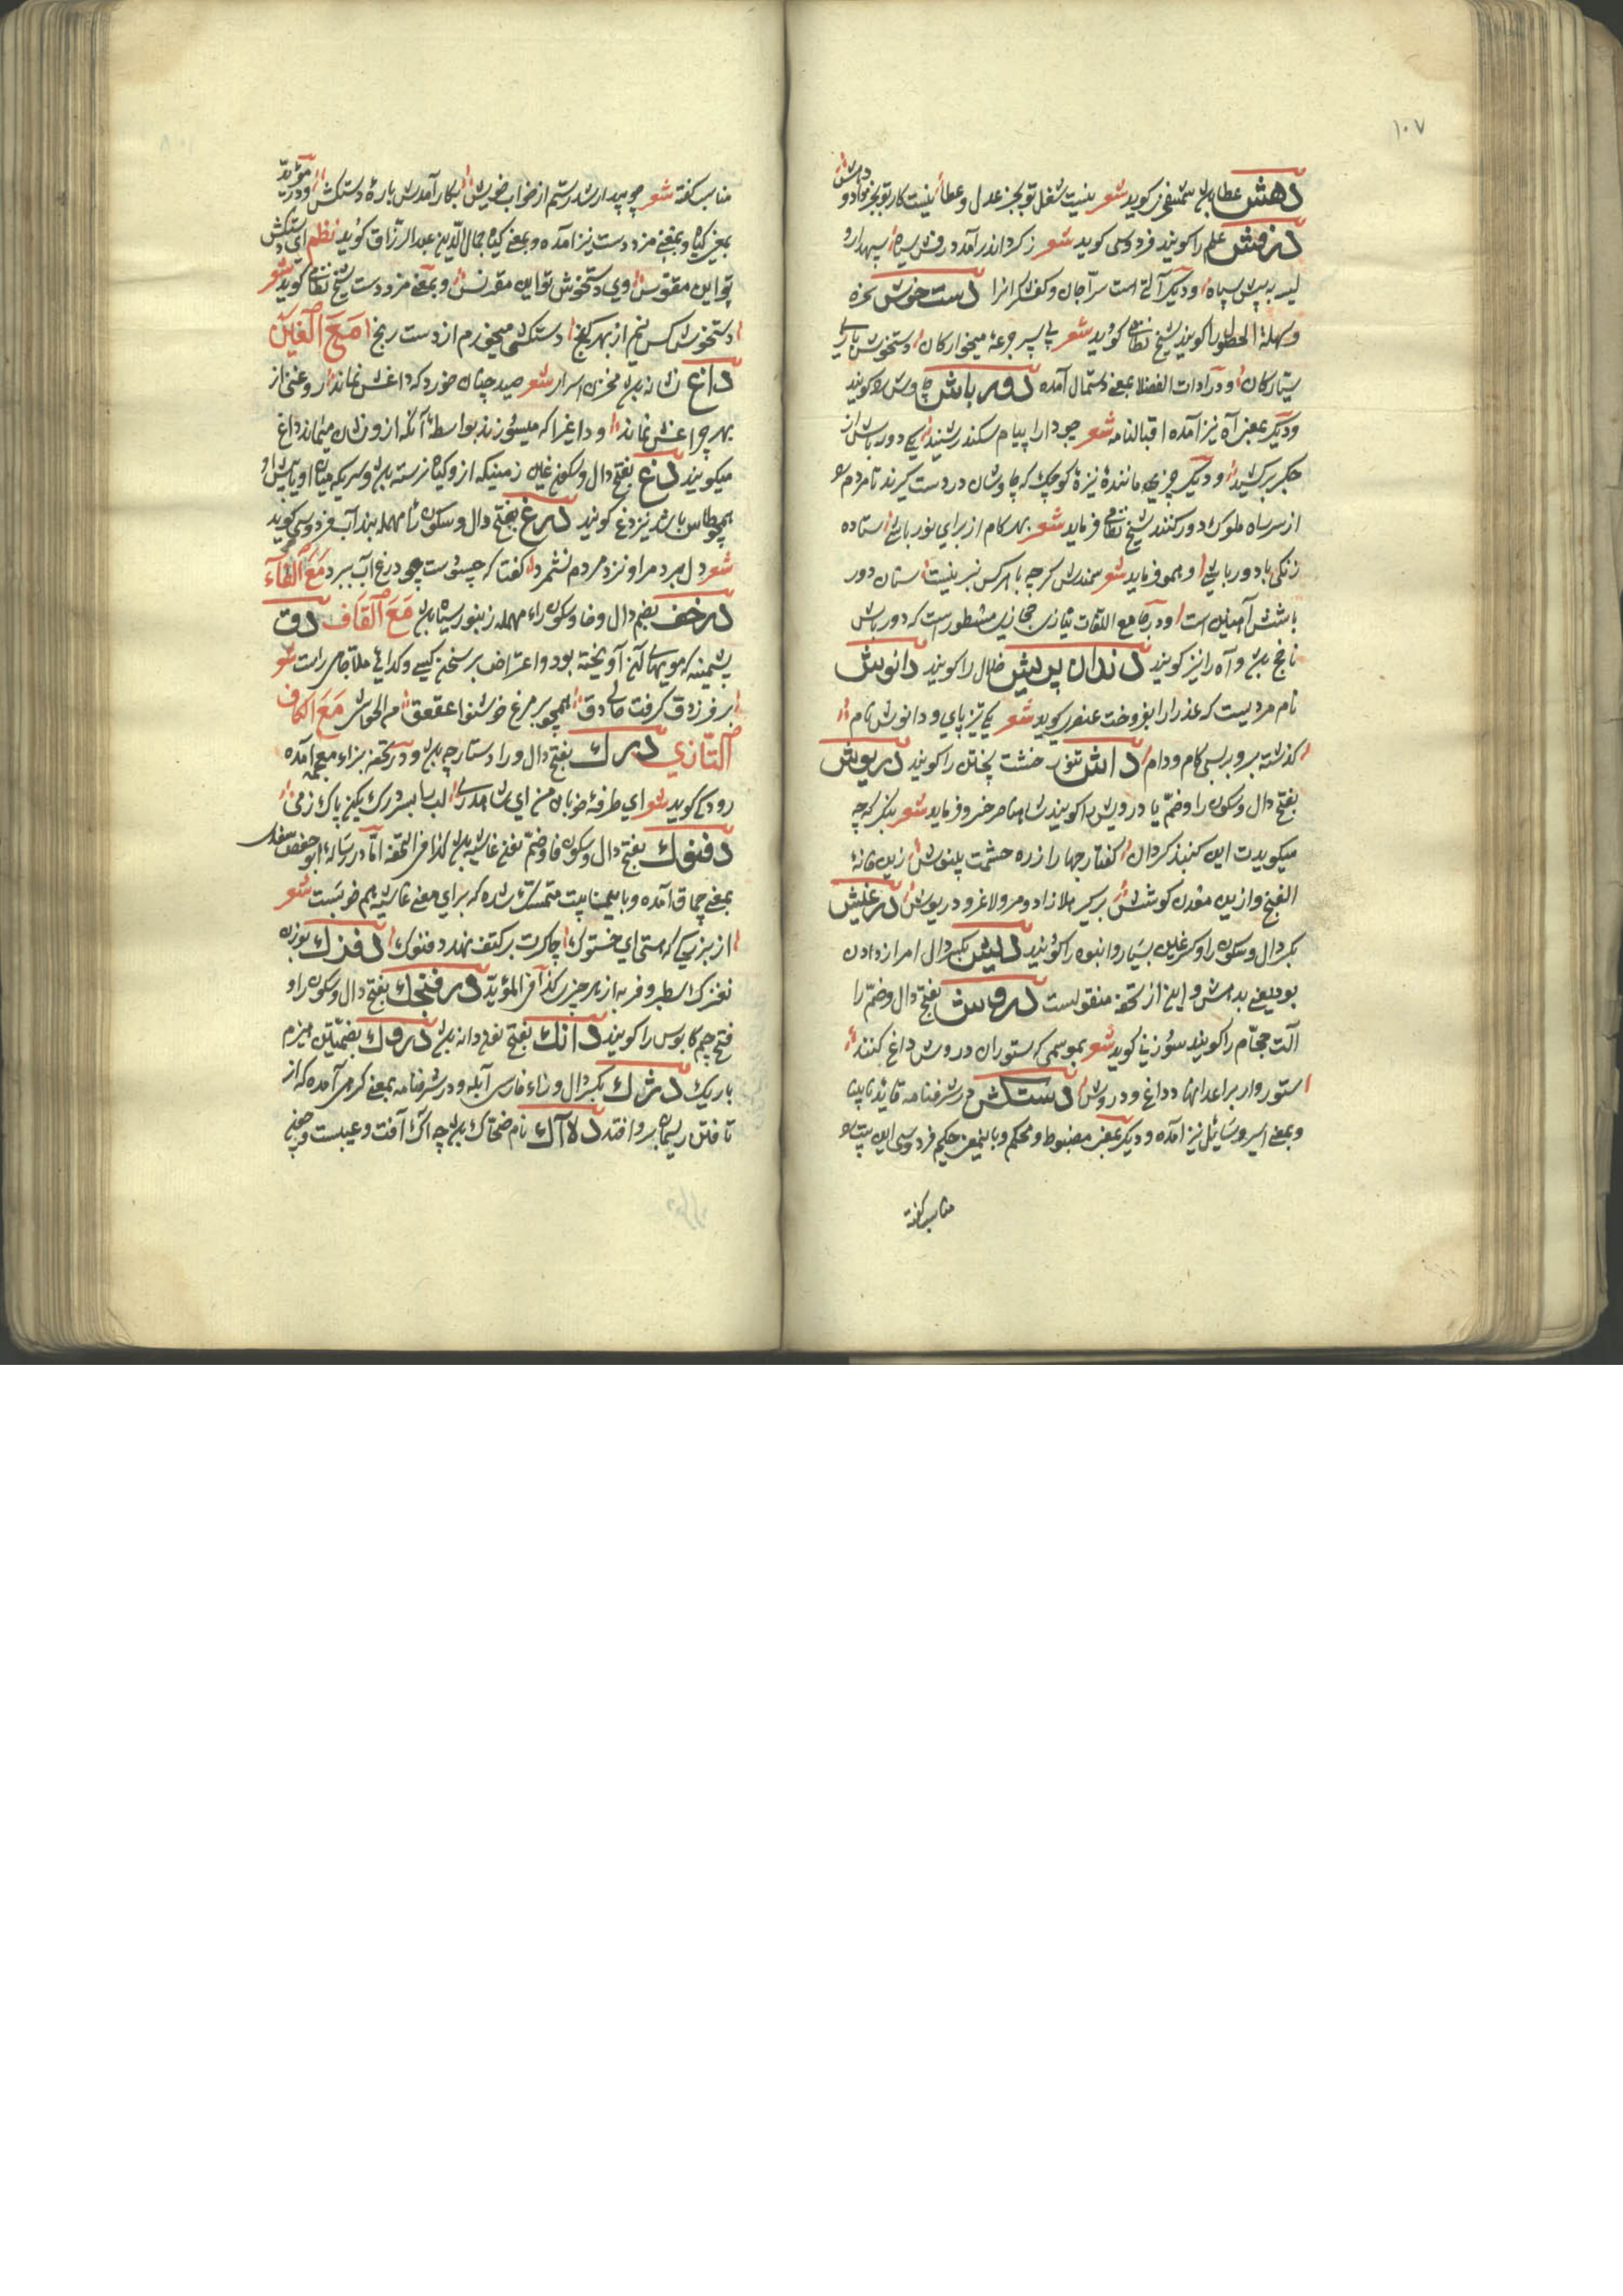 ۱۰۷
دهش عطا بود شمس فخری کوید شعر نیست شغل تو بجز عدل و عطا نیست کار تو بجز داد و دهش
درفش علم را کویند فردوسی کوید شعر ز کرد اندر آمد درفش سیاه سپهدار و
لیسه به پیش سپاه و دیگر آلتی است سراجان و کفشگرانرا دست خوش سخره
و سهلة الحصول را کویند شیخ نظامی کوید شعر پی سپر جرعهٔ میخوارکان دستخوش بازی
سیارکان و در ادات الفضلا بمعنی دستمال آمده دور باش چاوش را کویند
و دیگر بمعنی آه نیز آمده اقبالنامه شعر چو دارا پیام سکندر شنید یکی دور باش از
جکر برکشید و دیگر چیزی مانندهٔ نیزهٔ کوچک که چاوشان در دست کیرند تا مردم را
از سر راه ملوک دور کنند شیخ نظامی فرماید شعر بهر کام از برای نور پاشی ستاده
زنکی با دور باشی و همو فرماید شعر سمندش کرچه با هر کس نیست سنان دور
باشش آهنین است و در جامع اللغات نیازی حجازی مسطورست که دور باش
ناچخ بود و آه را نیز کویند دندان پریش خلال را کویند دانوش
نام مردیست که عذرا را بفروخت عنصری کوید شعر یکی تیز پای و دانوش نام
کذشته برو بر بسی کام و دام داش تنور خشت پختن را کویند دریوش
بفتح دال و سکون را و ضم یا درویش را کویند شاه ناصر خسرو فرماید شعر بنکر که چه
میکویدت این کنبذ کردان کفتار جهان را ز ره حشمت بنیوش زین خانه
الفنج و ازین معدن کوشش برکیر هلا زاد و مرو لاغر و دریوش درغیش
بکسر دال و سکون را و کسر غین بسیار و انبوه را کویند دلیش بکسر دال امر از دادن
بود یعنی بدهش و این از تحفه منقولست دروش بفتح دال و ضم را
آلت حجام را کویند سوزنی کوید شعر بموسمی که ستوران دروش داغ کنند
ستور وار بر اعدا نهاد داغ و دروش دستکش در شرفنامه قاید نابینا
و بمعنی اسیر و سائل نیز آمده و دیگر بمعنی مضبوط و محکم و باینمعنی حکیم فردوسی این بیت را
مناسب کفته
مناسب کفته شعر چو بیدار شد رستم از خواب خویش بکار آمدش بارهٔ دستکش و در مؤید
بمعنی کیاه و بمعنی مزد دست نیز آمده و بمعنی کیاه جمال الدین عبد الرزاق کوید نظم ای دستکش
تو این مقوس وی دستخوش تو این مقرنس و بمعنی مزد دست شیخ نظامی کوید شعر
دستخوش کس نیم از بهر کنج دستکشی میخورم از دست رنج مَعَ الْغَیْن
داغ نشانه بود مخزن اسرار شعر صید چنان خورد که داغش نماند روغنی از
بهر چراغش نماند و داغی را که میسوزند بواسطهٔ آنکه ازو نشان میماند داغ
میکویند دغ بفتح دال و سکون غین زمینیکه ازو کیاه نرسته بود و سریکه میان او یا پیش او
همچو طاس باشد نیز دغ کویند درغ بفتح دال و سکون را مهمله بند آب فردوسی کوید
شعر دل برد مرا و نزد مردم نشمرد کفتا که چسودست چو درغ آب ببرد مَعَ الْفَاء
درخف بضم دال و خا و سکون راء مهمله زنبور سیاه بود مَعَ الْقَاف دق
پشمینه که مویها ازان آویخته بود و اعتراض بر سخن کسی و کدایی ملا جامی راست شعر
بر فرزدق کرفت حالی دق همچو بر مرغ خوشنوا عقعق مع الحواشی مَعَ الکاف
التازی درک بفتح دال و را دستارچه بود و در تحفه بزاء معجمه آمده
رودکی کوید شعر ای طرفهٔ خوبان من ای شاهد ری لب را بسر درک بکن پاک ز می
دفنوک بفتح دال و سکون فا و ضم نون غاشیه بود کذا فی التحفه اما در رسالهٔ ابو حفص سغدی
بمعنی چماق آمده و باین بیت متمسک شده که برای معنی غاشیه هم خوبست شعر
از بزرکی که هستی ای خشنوک چاکرت بر کتف نهد دفنوک دفزک بوزن
نغزک اسطبر و فربه از هر چیز کذا فی المؤید درفنجک بفتح دال و سکون را و
فتح جیم کابوس را کویند دانک بفتح نون دانه بود دروک بضمتین هیزم
باریک دژک بکسر دال و زاء فارسی آبله و در شرفنامه بمعنی کرهی آمده که از
تافتن ریسمان برو افتد دلاآک نام ضحاک بود چه آک آفت و عیبست و چون